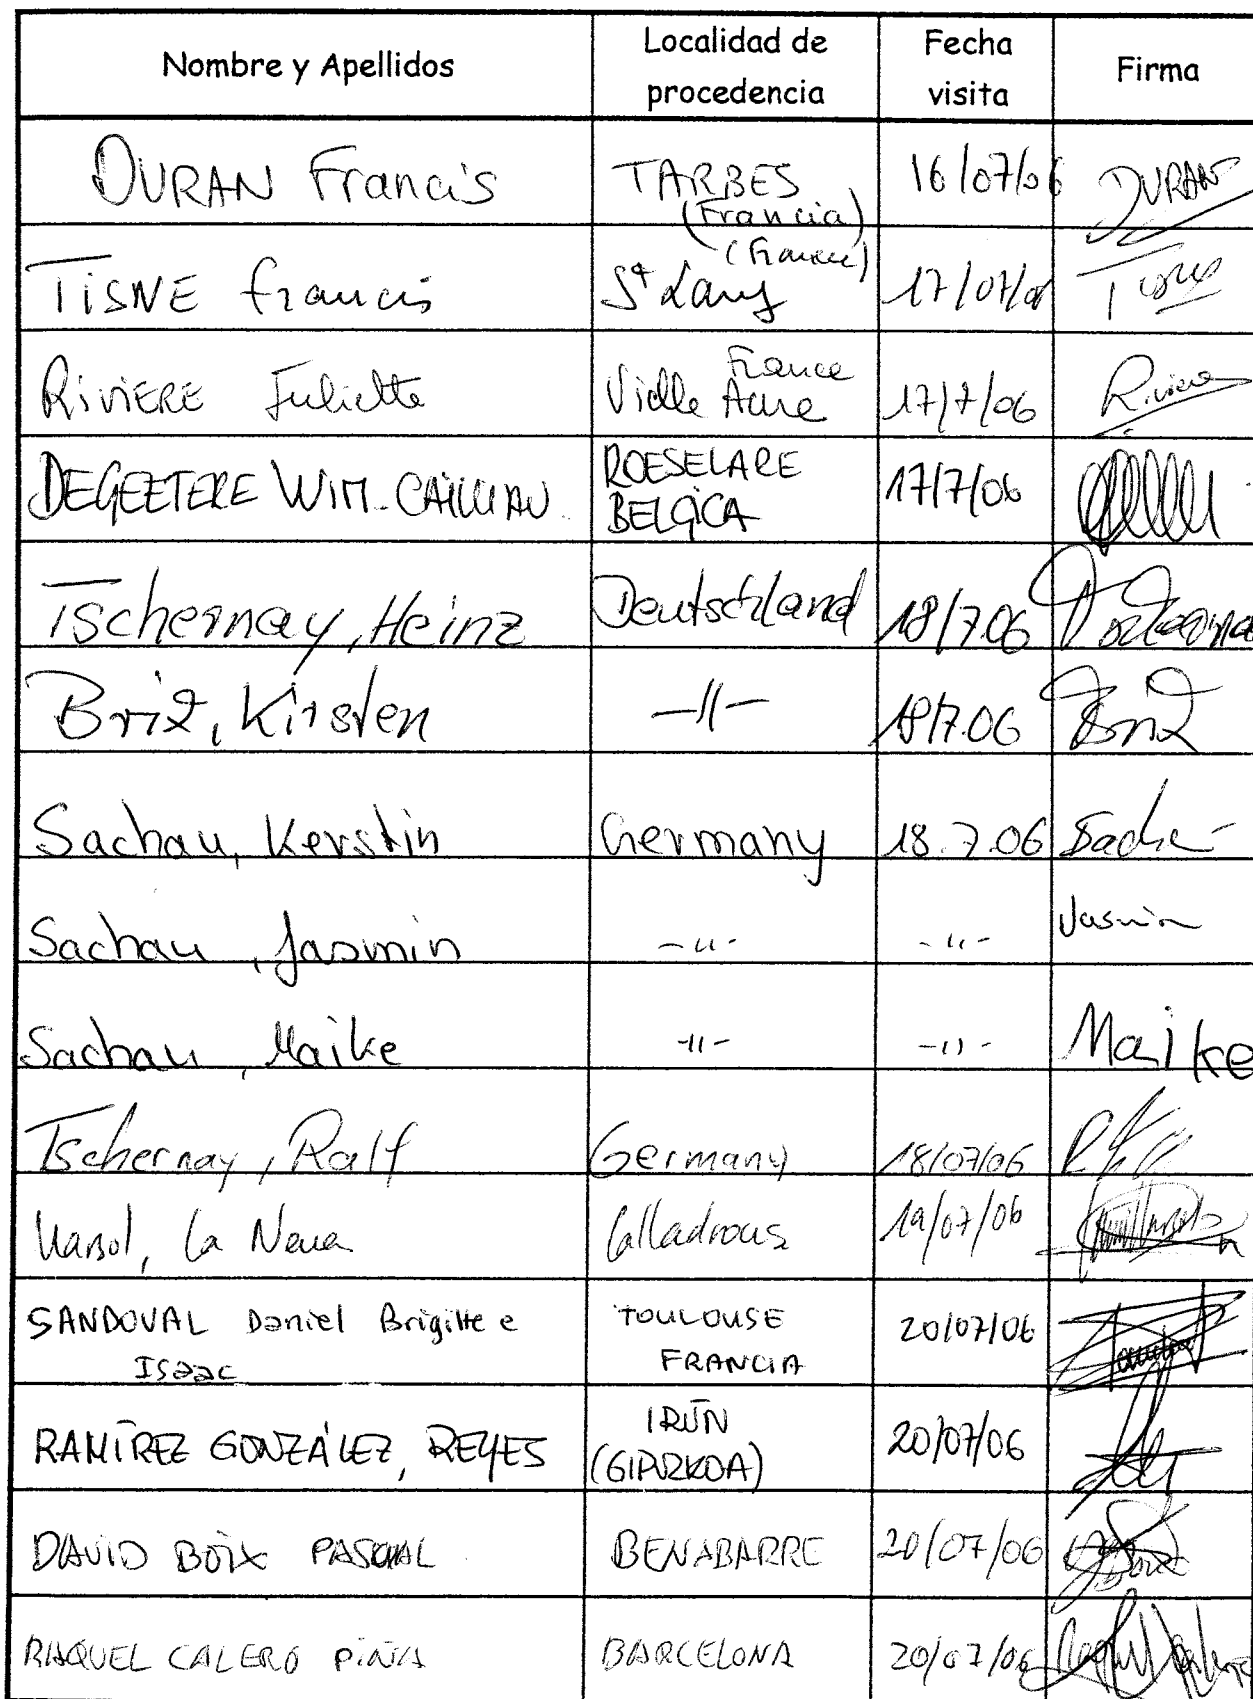 Nombre y Apellidos Localidad de procedencia Fecha visita Firma
DURAN Francis TARBES (Francia) 16/07/06 DURAN
TISNE francis St Lary (France) 17/07/06 Tisne
RIVIERE Juliette Vielle Aure France 17/7/06 Riviere
DEGEETERE WIM-CAILLIAU ROESELARE BELGICA 17/7/06
Tschernay, Heinz Deutschland 18/7.06
Briz, Kirsten -11- 18/7.06 Briz
Sachau, Kerstin Germany 18.7.06 Sachau
Sachau, Jasmin -11- -11- Jasmin
Sachau, Maike -11- -11- Maike
Tschernay, Ralf Germany 18/07/06
La Neua 19/07/06
SANDOVAL Daniel Brigitte e Isaac TOULOUSE FRANCIA 20/07/06
RAMÍREZ GONZÁLEZ, REYES IRÚN (GIPUZKOA) 20/07/06
DAVID BOIX PASCUAL BENABARRE 20/07/06
RAQUEL CALERO PIÑA BARCELONA 20/07/06